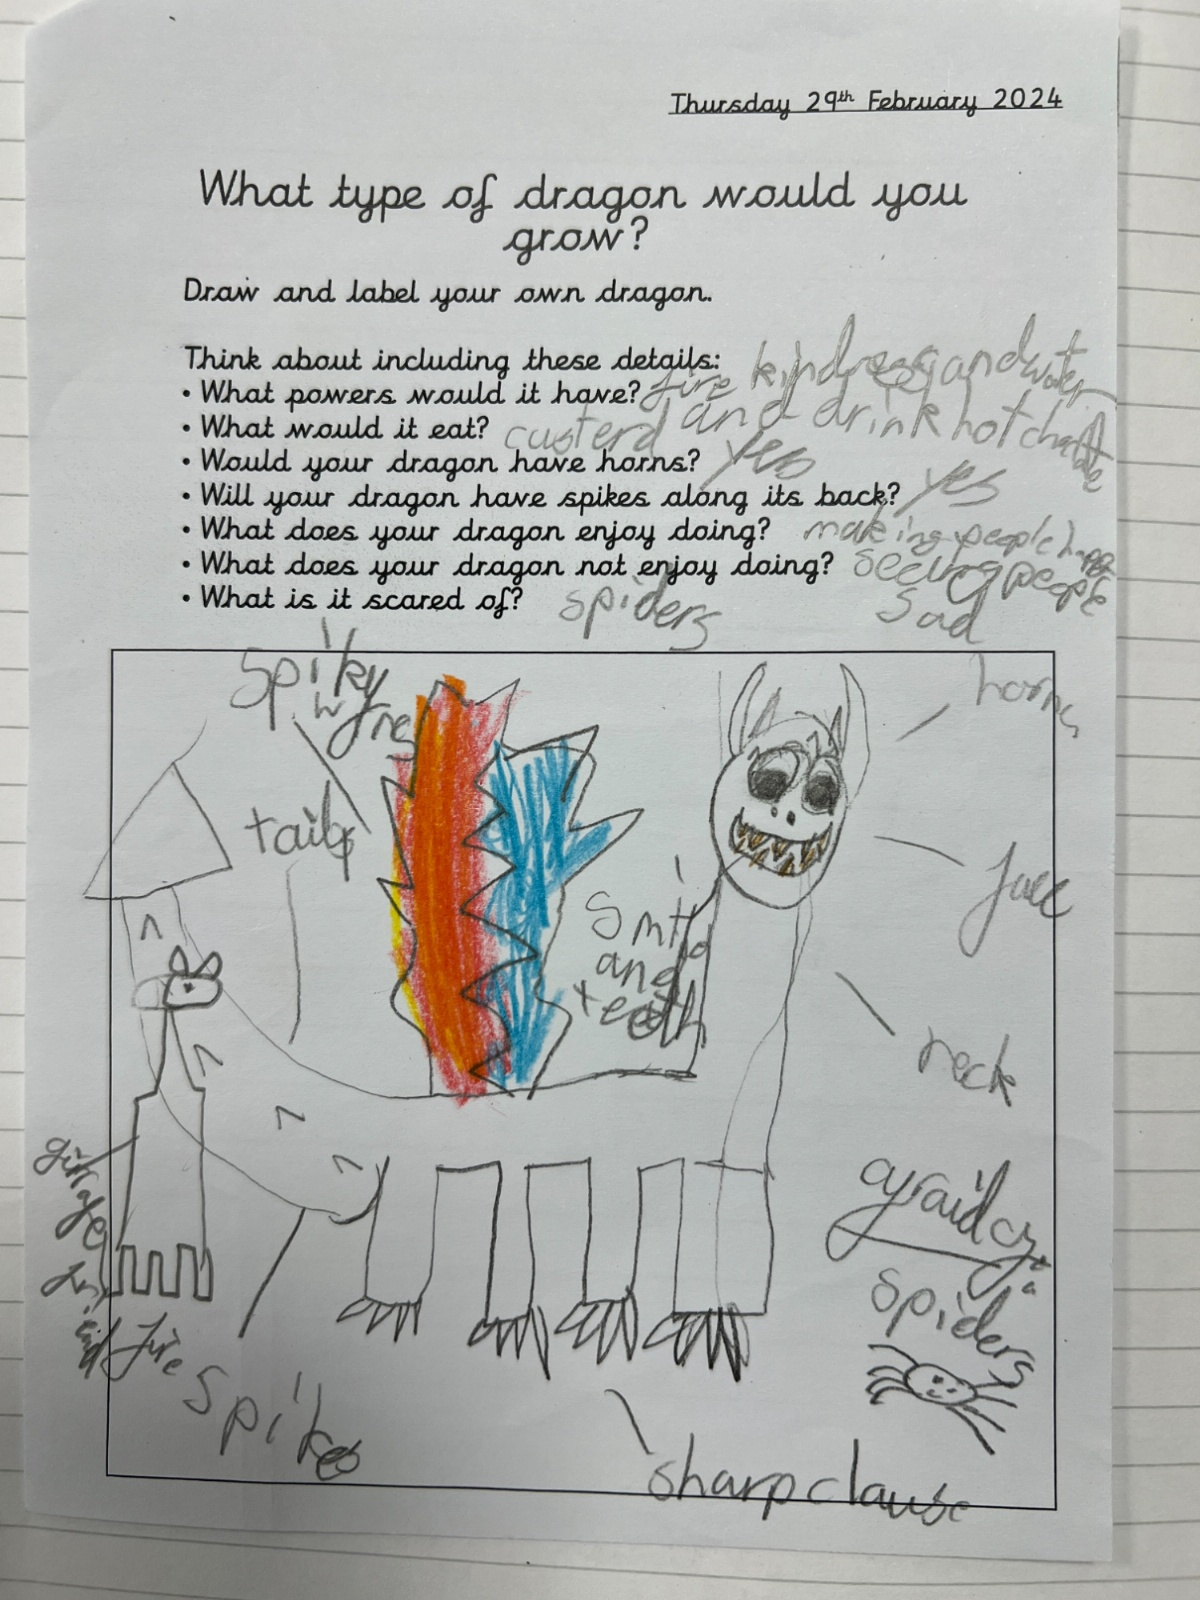 Thursday 29th February 2024
What type of dragon would you
grow?
Draw and label your own dragon.
Think about including these details:
• What powers would it have? fire kindness and water
• What would it eat? custerd and drink hot
• Would your dragon have horns? yes
• Will your dragon have spikes along its back? yes
• What does your dragon enjoy doing? making people happ
• What does your dragon not enjoy doing? seeing people
sad
• What is it scared of? spiders
spiky
horns
tail
and
teeth
neck
afraid of
spiders
fire
spikes
sharp clause